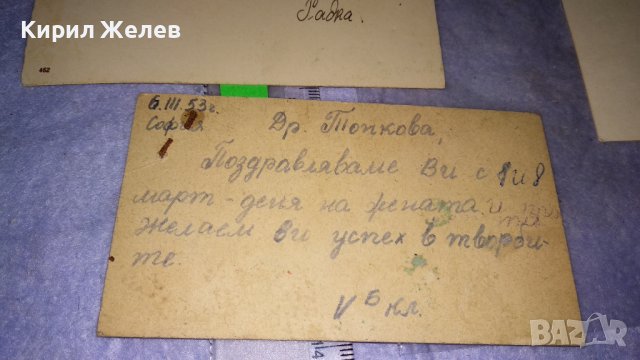 Кирил Желев
Радка.
462
6.III.53г.
София
Др. Топкова,
Поздравляваме Ви с 1 и 8
март - деня на жената и
желаем ви успех в твърди-
те.
V б кл.
BAZAR
bg